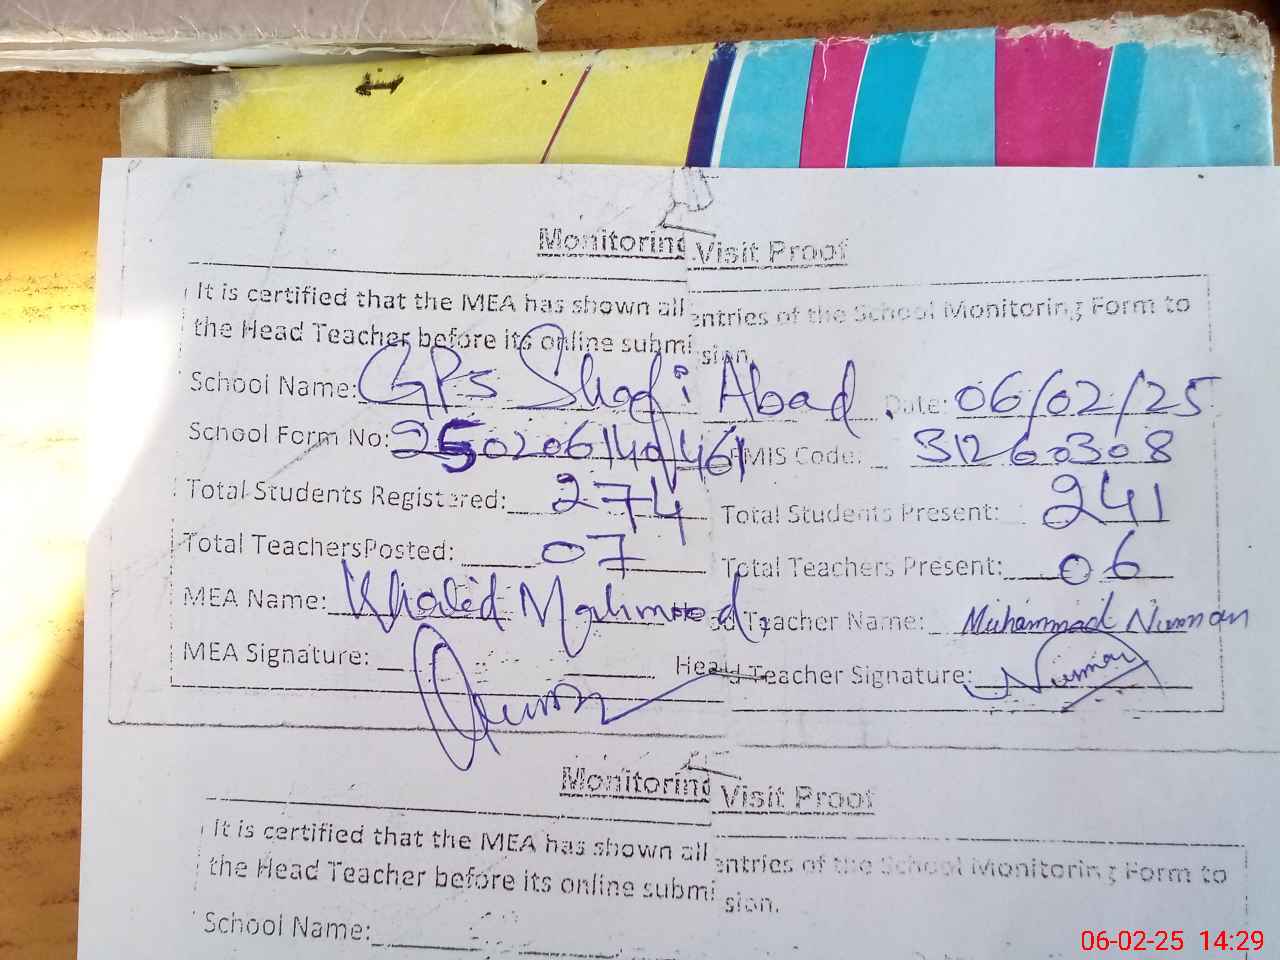 Monitoring Visit Proof
It is certified that the MEA has shown all entries of the School Monitoring Form to
the Head Teacher before its online submission.
School Name: GPS Shafi Abad Date: 06/02/25
School Form No: 250206140461 EMIS Code: 31260308
Total Students Registered: 274 Total Students Present: 241
Total TeachersPosted: 07 Total Teachers Present: 06
MEA Name: Khalid Mahmood Head Teacher Name: Muhammad Numan
MEA Signature: Head Teacher Signature: Numan
Monitoring Visit Proof
It is certified that the MEA has shown all entries of the School Monitoring Form to
the Head Teacher before its online submission.
School Name:
06-02-25 14:29